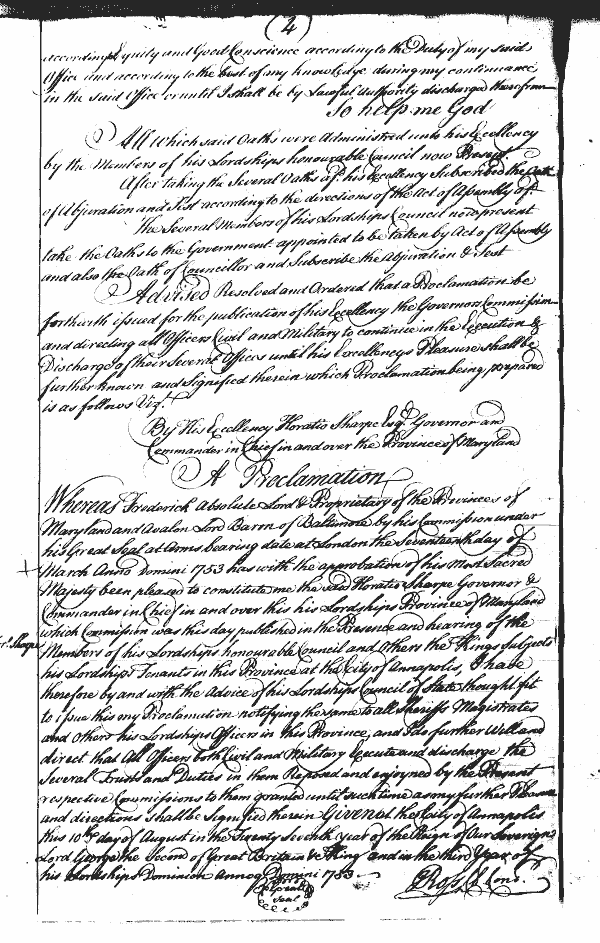 (4)
according Equity and Good Conscience according to the Duty of my said
Office and according to the best of my knowledge during my continuance
in the said Office or until I shall be by Lawful Authority discharged therefrom
So help me God
All which said Oaths were Administred unto his Excellency
by the Members of his Lordships honourable Council now Present.
After taking the Several Oaths afd. his Excellency Subscribed the Oath
of Abjuration and Test according to the directions of the Act of Assembly afd
The Several Members of his Lordships Council now present
take the Oaths to the Government appointed to be taken by Act of Assembly
and also the Oath of Councillor and Subscribe the Abjuration & Test
Advised Resolved and Ordered that a Proclamation be
forthwith issued for the publication of his Excellency the Governors Commission
and directing all Officers Civil and Military to continue in the Execution &
Discharge of their Several Offices until his Excellencys Pleasure shall be
further known and Signified therein which Proclamation being prepared
is as follows Vizt.
By His Excellency Horatio Sharpe Esqr. Governor and
Commander in Chief in and over the Province of Maryland
A Proclamation
Whereas Frederick Absolute Lord & Proprietary of the Provinces of
Maryland and Avalon Lord Baron of Baltimore by his Commission under
his Great Seal at Arms bearing date at London the Seventeenth day of
March Anno Domini 1753 has with the approbation of his Most Sacred
Majesty been pleased to constitute me the said Horatio Sharpe Governor &
Commander in Chief in and over this his Lordships Province of Maryland
which Commission was this day published in the Presence and hearing of the
Sharpe
Members of his Lordships honourable Council and Others the Kings Subjects
his Lordships Tenants in this Province at the City of Annapolis, I have
therefore by and with the Advice of his Lordships Council of State thought fit
to issue this my Proclamation notifying the same to all Sheriffs Magistrates
and Others his Lordships Officers in this Province, and I do further Will and
direct that All Officers both Civil and Military execute and discharge the
Several Trusts and Duties in them Reposed and enjoyned by the Present
respective Commissions to them granted until such time as my further Pleasure
and directions shall be Signified therein Given at the City of Annapolis
this 10th day of August in the Twenty Seventh Year of the Reign of Our Sovereign
Lord George the Second of Great Britain &c King and in the third Year of
his Lordships Dominion Annoq Domini 1753
J Ross Cl Con.
Seal